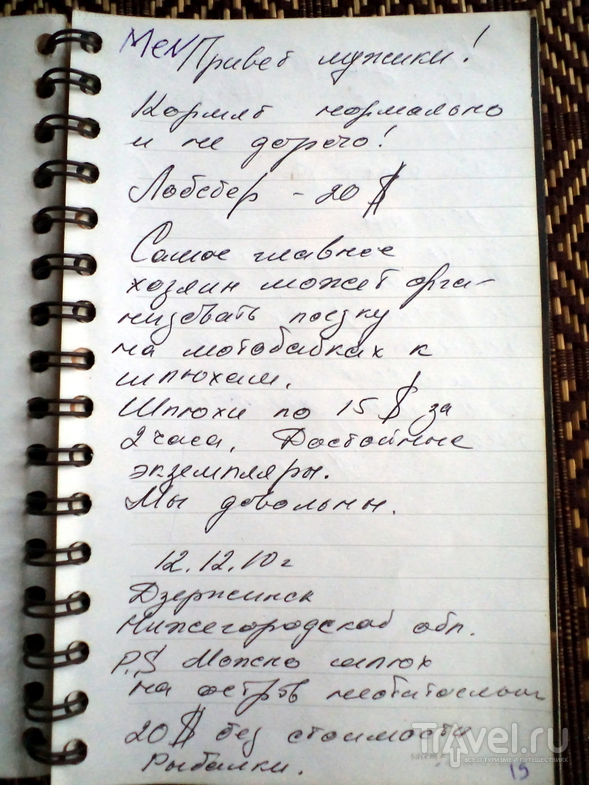 Men Привет мужики!
Кормят нормально
и не дорого!
Лобстер - 20 $
Самое главное
хозяин может орга-
низовать поезку
на мотобайках к
шлюхам.
Шлюхи по 15 $ за
2 часа. Достойные
экземпляры.
Мы довольны.
12.12.10 г
Дзержинск
Нижегородской обл.
P.S Можно шлюх
на остров
20 $ без стоимости
Рыбалки.
Travel.ru
15